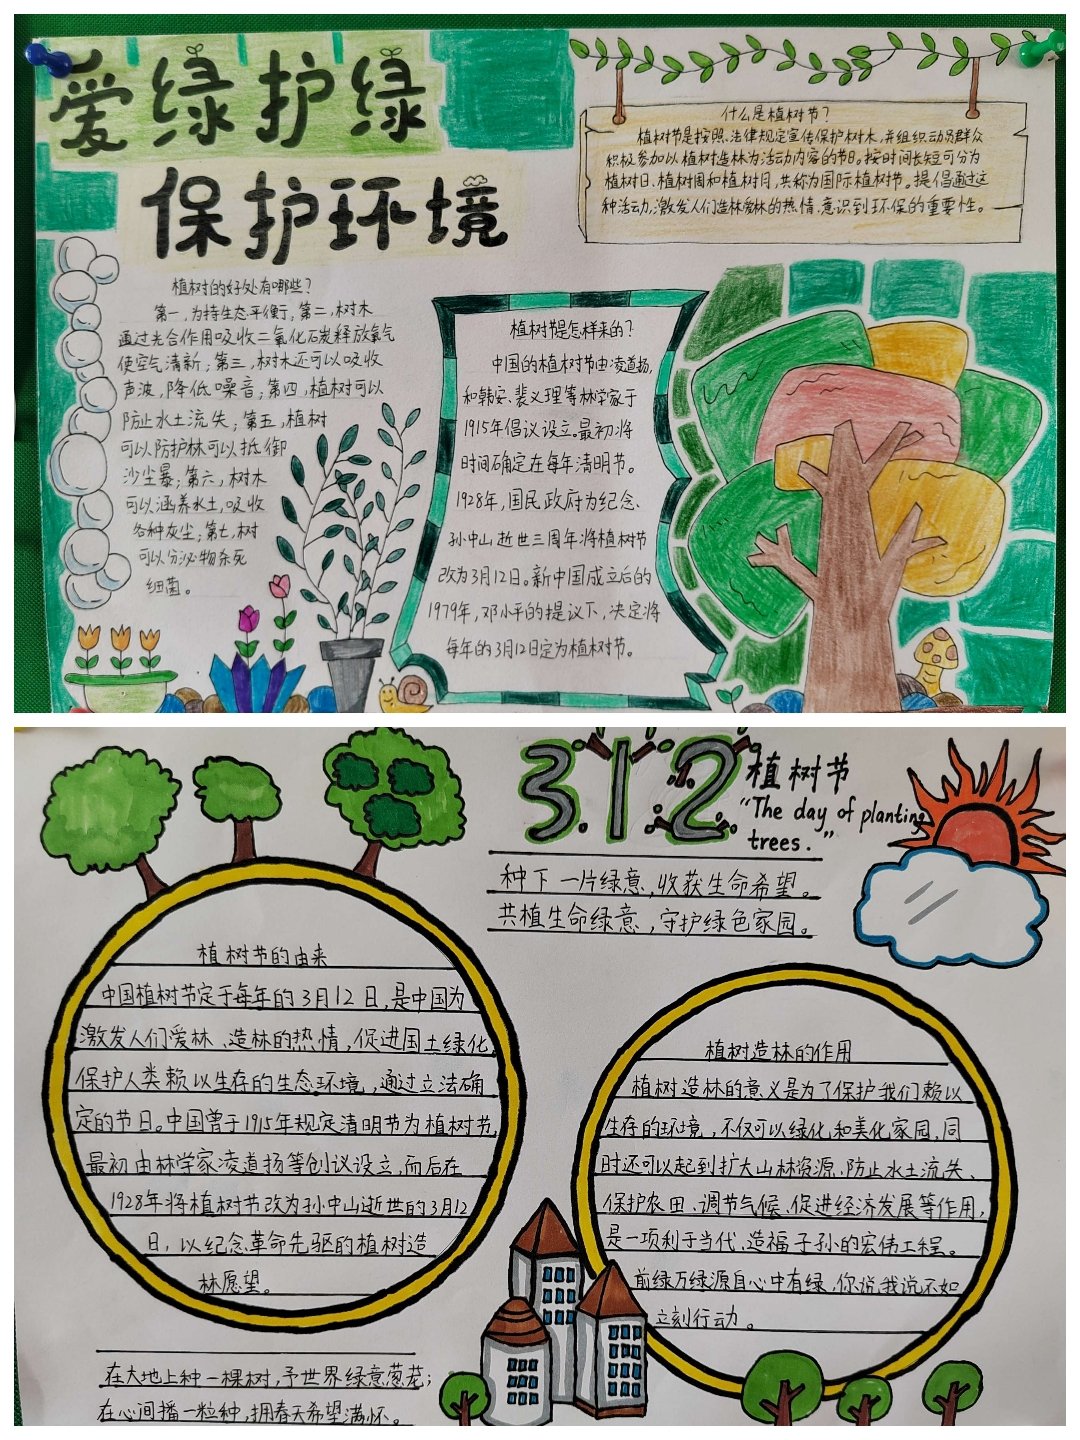 爱绿护绿
保护环境
什么是植树节?
植树节是按照法律规定宣传保护树木,并组织动员群众
积极参加以植树造林为活动内容的节日。按时间长短可分为
植树日、植树周和植树月,共称为国际植树节。提倡通过这
种活动,激发人们造林爱林的热情、意识到环保的重要性。
植树的好处有哪些?
第一,为持生态平衡;第二,树木
通过光合作用吸收二氧化石炭释放氧气
使空气清新;第三,树木还可以吸收
声波,降低噪音;第四,植树可以
防止水土流失;第五,植树
可以防护林可以抵御
沙尘暴;第六,树木
可以涵养水土,吸收
各种灰尘;第七,树
可以分泌物杀死
细菌。
植树节是怎样来的?
中国的植树节由凌道扬,
和韩安、裴义理等林学家于
1915年倡议设立。最初将
时间确定在每年清明节。
1928年,国民政府为纪念、
孙中山逝世三周年将植树节
改为3月12日。新中国成立后的
1979年,邓小平的提议下,决定将
每年的3月12日定为植树节。
3.12植树节
"The day of planting
trees."
种下一片绿意,收获生命希望。
共植生命绿意,守护绿色家园。
植树节的由来
中国植树节定于每年的3月12日,是中国为
激发人们爱林、造林的热情,促进国土绿化,
保护人类赖以生存的生态环境,通过立法确
定的节日。中国曾于1915年规定清明节为植树节,
最初由林学家凌道扬等创议设立,而后在
1928年将植树节改为孙中山逝世的3月12
日,以纪念革命先驱的植树造
林愿望。
植树造林的作用
植树造林的意义是为了保护我们赖以
生存的环境,不仅可以绿化,和美化家园,同
时还可以起到扩大山林资源、防止水土流失、
保护农田、调节气候、促进经济发展等作用,
是一项利于当代、造福子孙的宏伟工程。
前绿万绿源自心中有绿,你说,我说不如
立刻行动。
在大地上种一棵树,予世界绿意葱茏;
在心间播一粒种,拥春天希望满怀。